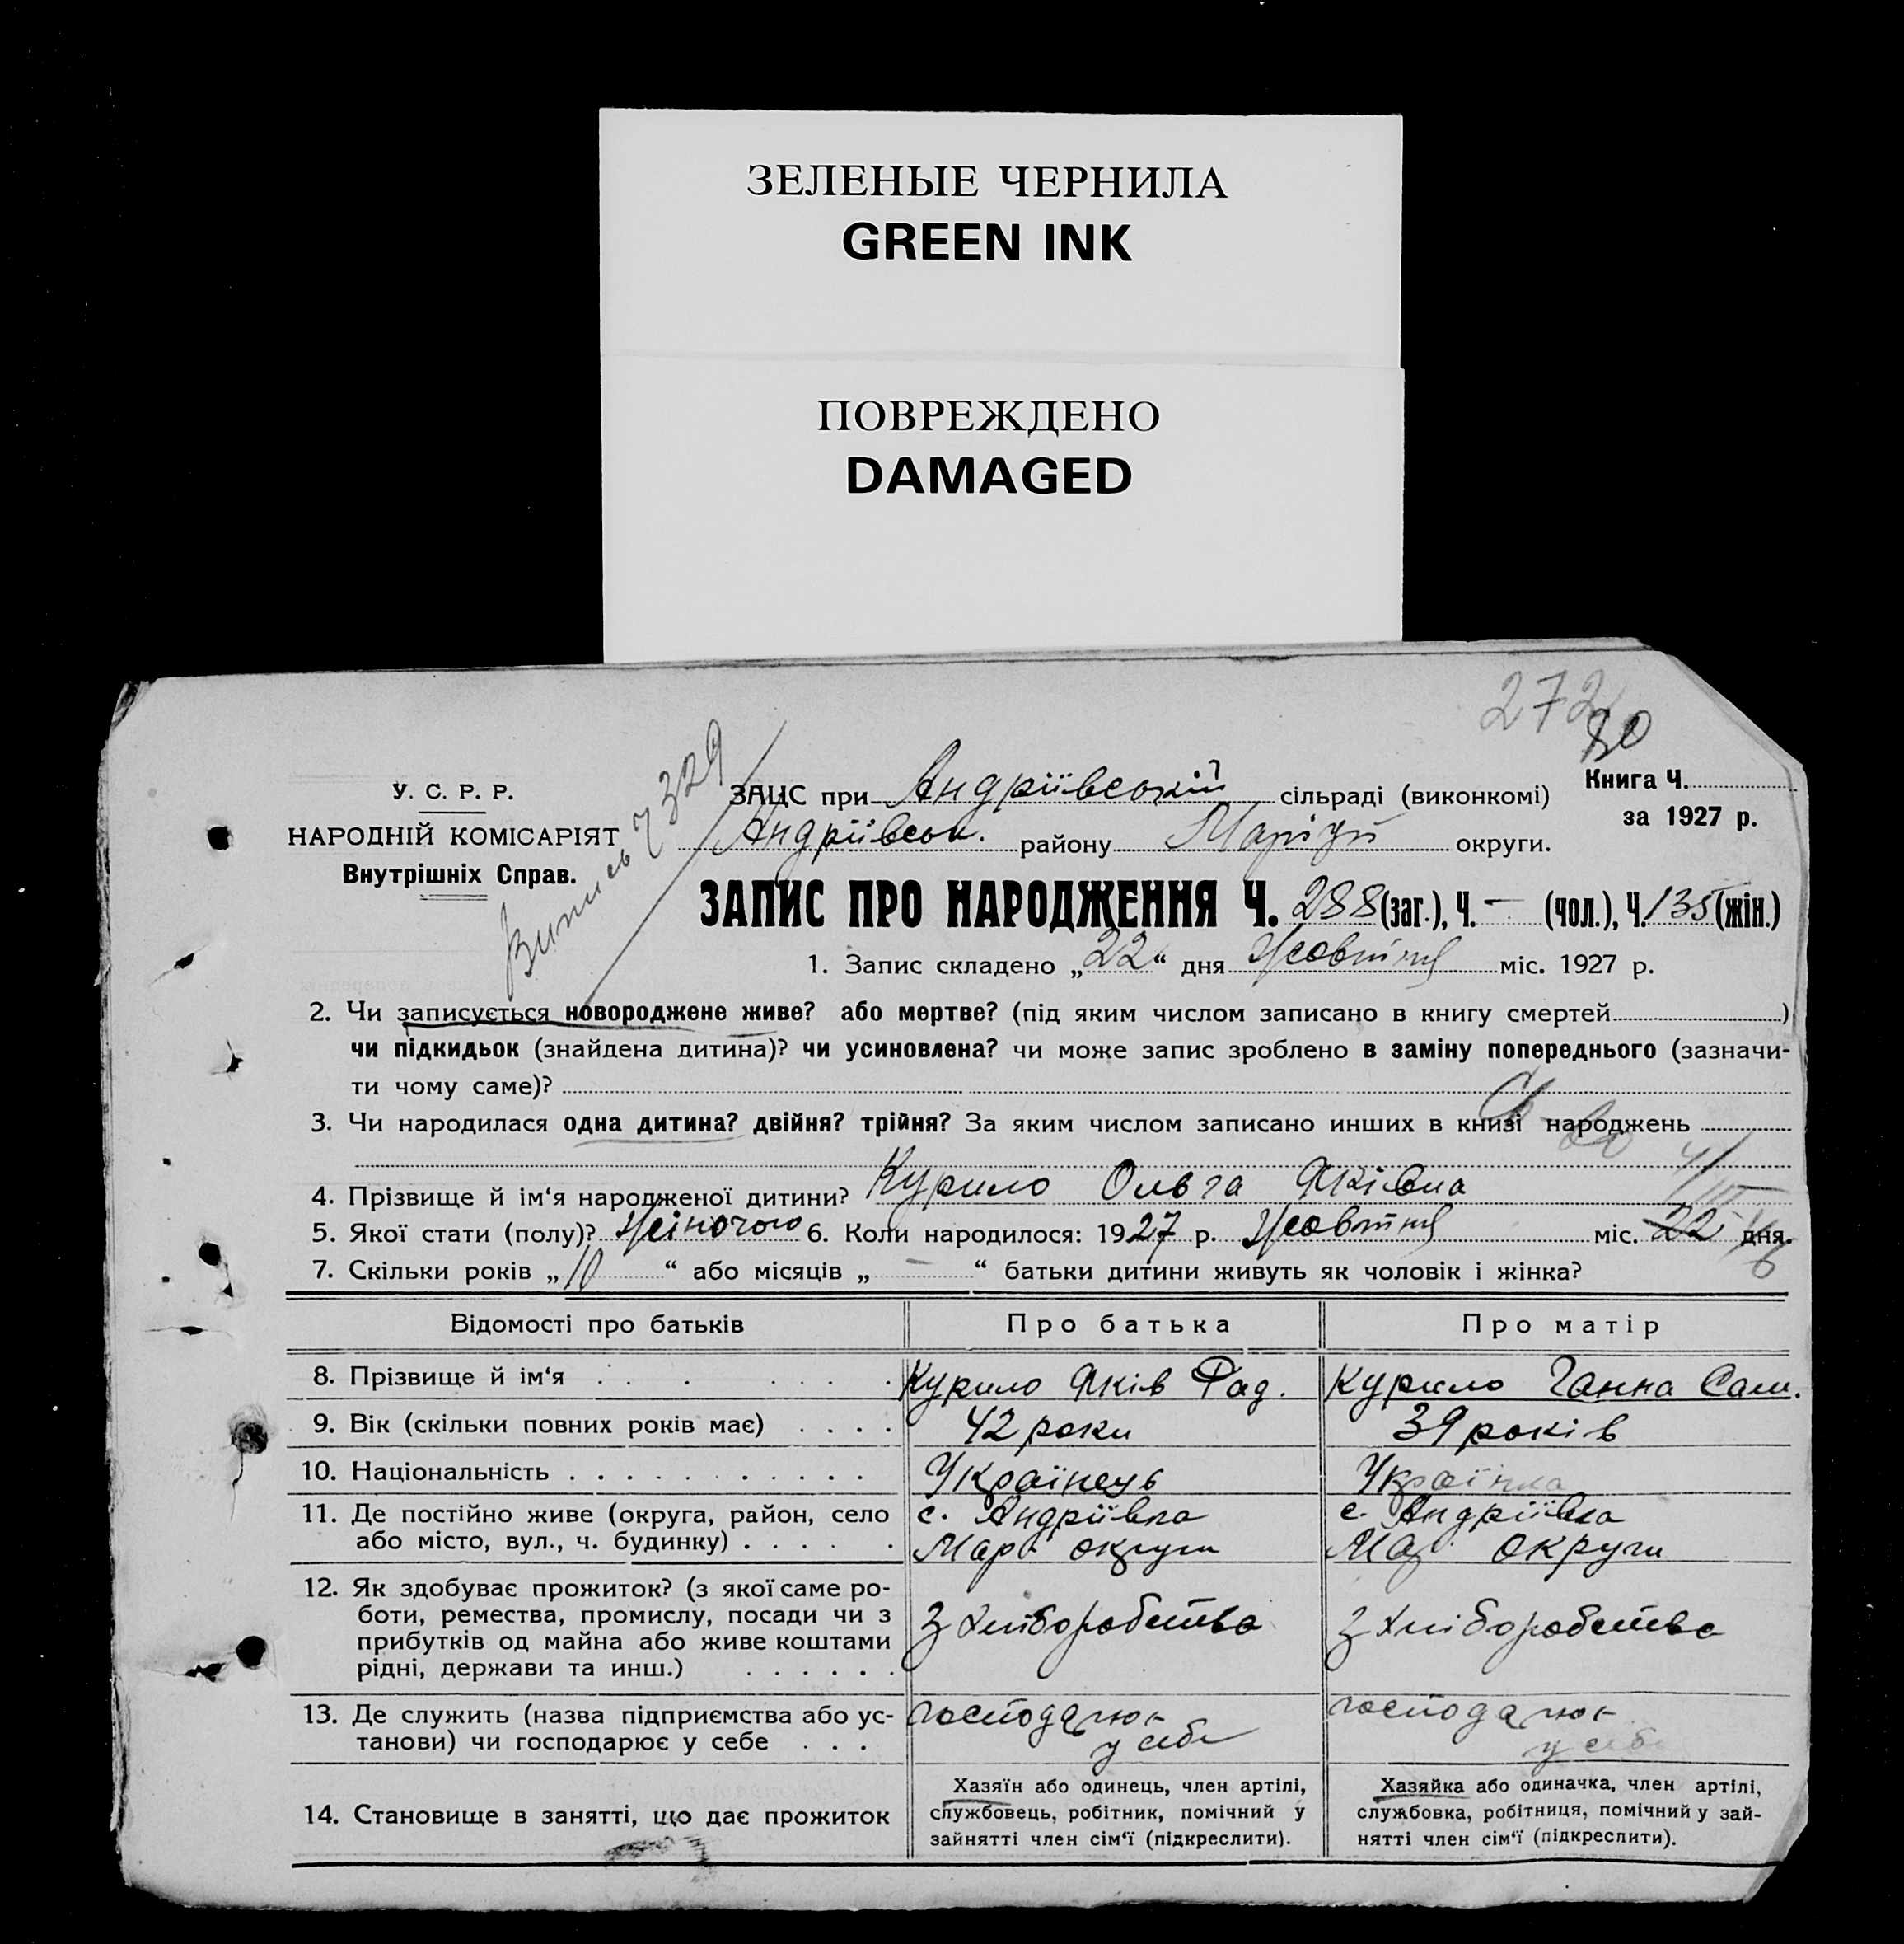 ЗЕЛЕНЫЕ ЧЕРНИЛА
GREEN INK
ПОВРЕЖДЕНО
DAMAGED
272
80
У. С. Р. Р.
НАРОДНІЙ КОМІСАРІЯТ
Внутрішніх Справ.
Витись 7329
ЗАЦС при Андріївській сільраді (виконкомі)
Книга Ч.
за 1927 р.
Андріївськ. району Маріуп округи.
ЗАПИС ПРО НАРОДЖЕННЯ Ч. 288 (заг.), Ч. - (чол.), Ч. 135 (жін.)
1. Запис складено „22“ дня Жовтня міс. 1927 р.
2. Чи записується новороджене живе? або мертве? (під яким числом записано в книгу смертей)
чи підкидьок (знайдена дитина)? чи усиновлена? чи може запис зроблено в заміну попереднього (зазначи-
ти чому саме)?
3. Чи народилася одна дитина? двійня? трійня? За яким числом записано инших в книзі народжень
4. Прізвище й ім‘я народженої дитини? Курило Ольга Яківна
5. Якої стати (полу)? Жіночого 6. Коли народилося: 1927 р. Жовтня міс. 22 дня.
7. Скільки років „10“ або місяців „-“ батьки дитини живуть як чоловік і жінка?
Відомості про батьків Про батька Про матір
8. Прізвище й ім‘я Курило Яків Фад. Курило Ганна Сам.
9. Вік (скільки повних років має) 42 роки 39 років
10. Національність Українець Українка
11. Де постійно живе (округа, район, село с. Андріївка с. Андріївка
або місто, вул., ч. будинку) Мар. округи Мар. округи
12. Як здобуває прожиток? (з якої саме ро-
боти, ремества, промислу, посади чи з З хліборобства З хліборобства
прибутків од майна або живе коштами
рідні, держави та инш.)
13. Де служить (назва підприємства або ус- господарює господарює
танови) чи господарює у себе у себе у себе
14. Становище в занятті, що дає прожиток
Хазяїн або одинець, член артілі,
службовець, робітник, помічний у
зайнятті член сім‘ї (підкреслити).
Хазяйка або одиначка, член артілі,
службовка, робітниця, помічний у зай-
нятті член сім‘ї (підкреслити).